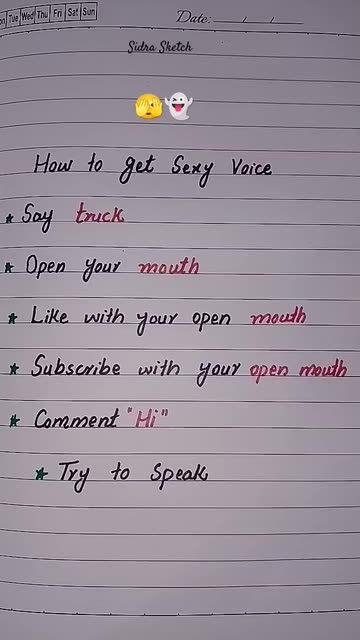 Tue Wed Thu Fri Sat Sun
Date: __/__/__
Sidra Sketch
🫣👻
How to get Sexy Voice
★ Say truck
★ Open your mouth
★ Like with your open mouth
★ Subscribe with your open mouth
★ Comment "Hi"
★ Try to Speak